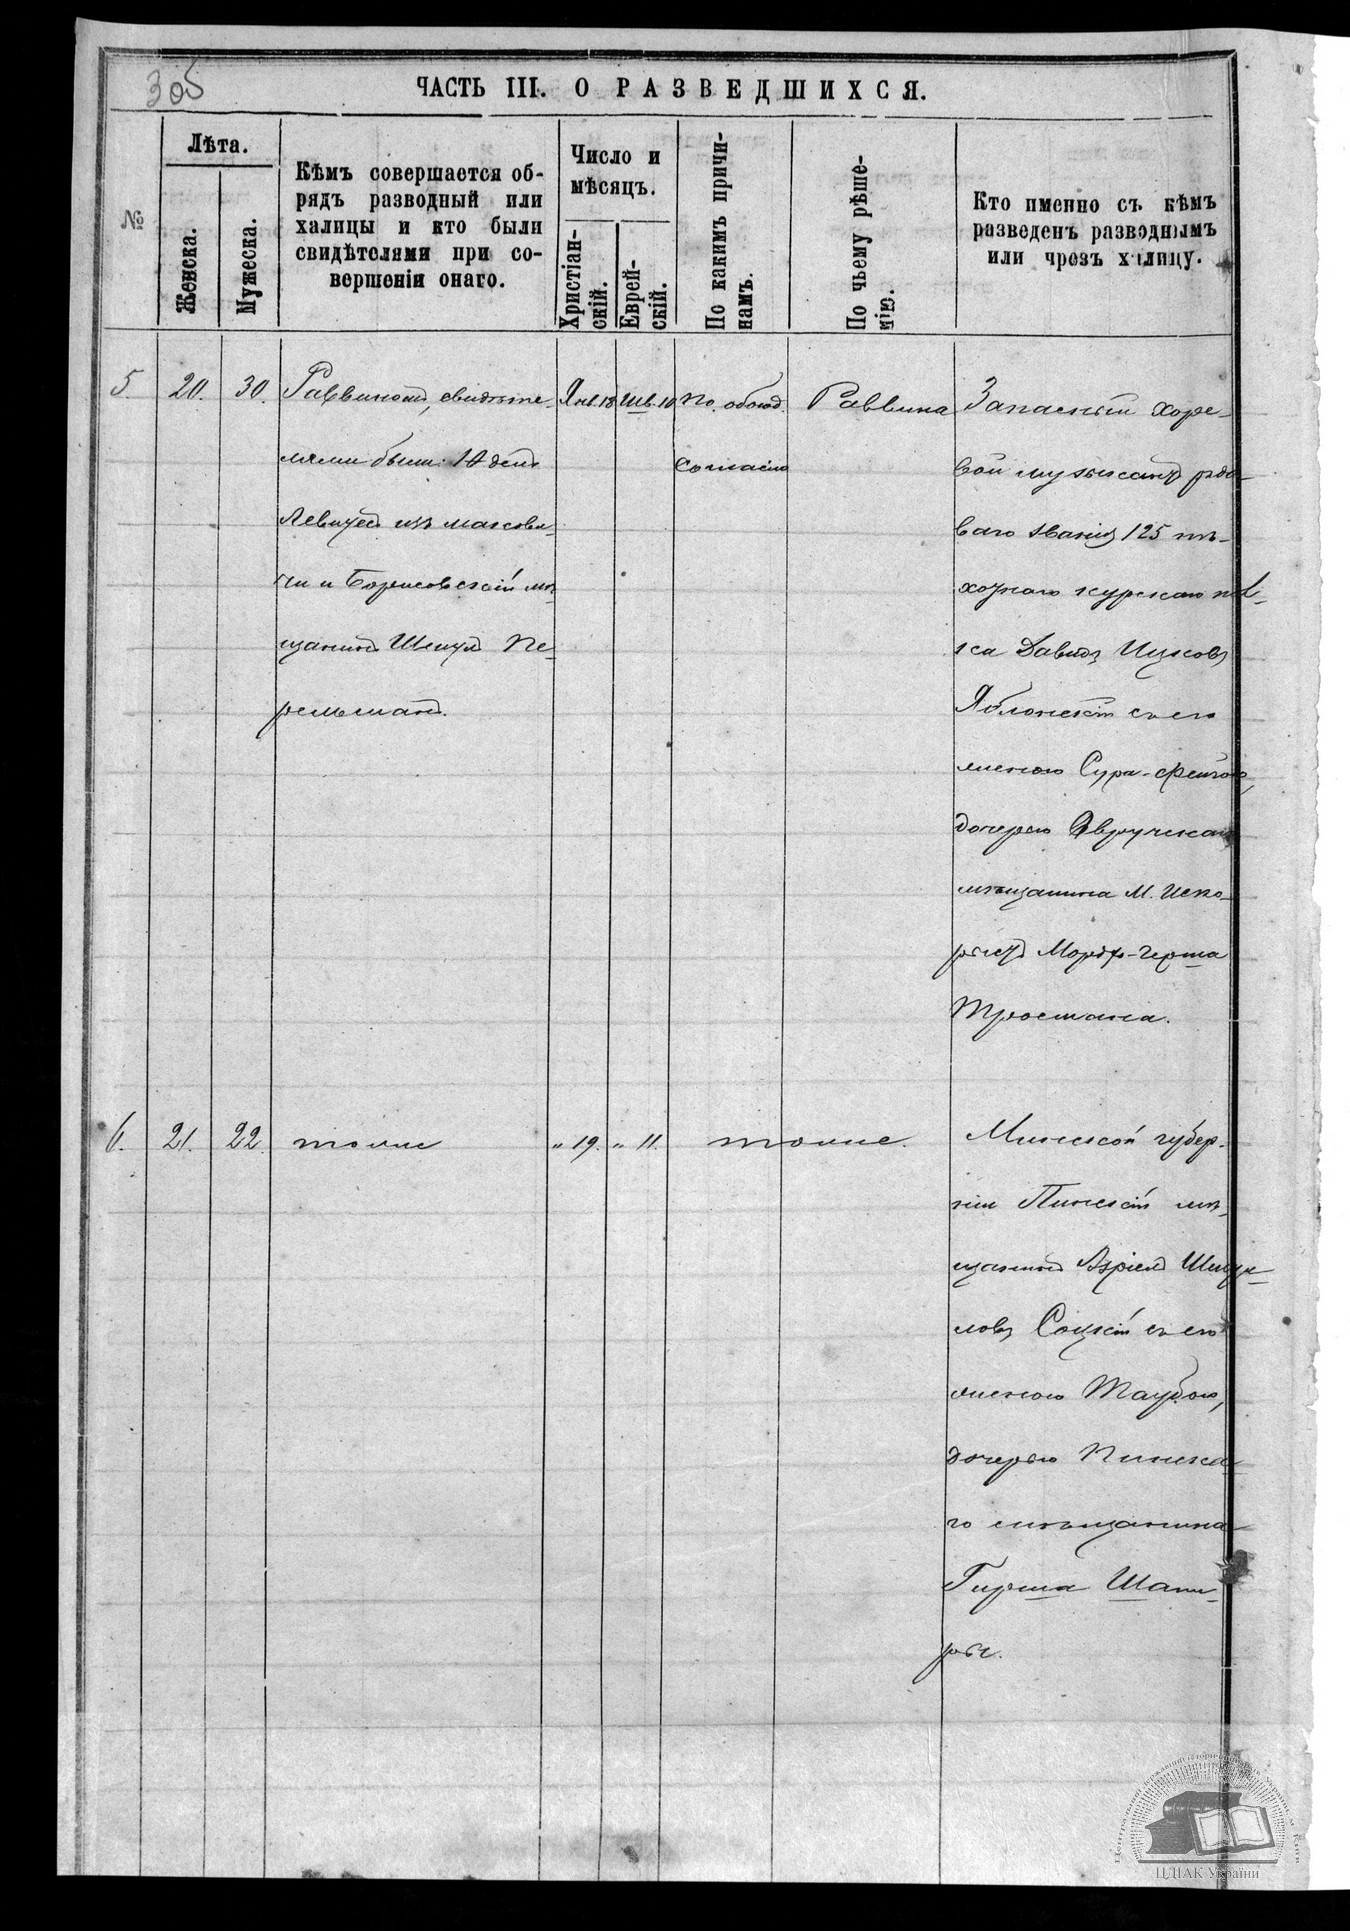 305
ЧАСТЬ III. О РАЗВЕДШИХСЯ.
№
Лѣта.
Женска.
Мужеска.
Кѣмъ совершается об-
рядъ разводный или
халицы и кто были
свидѣтелями при со-
вершеніи онаго.
Число и
мѣсяцъ.
Христіан-
скій.
Еврей-
скій.
По какимъ причи-
намъ.
По чьему рѣше-
нію.
Кто именно съ кѣмъ
разведенъ разводнымъ
или чрезъ халицу.
5. 20. 30.
Раввиномъ, свидѣте-
лями были:
Левицъ изъ
чи и Борисовскій мѣ-
щанинъ Шмуль Пе-
рельманъ.
Янв. 18 Шв. 10
по обоюд.
согласію
Раввина
Запасный хоре-
вой музыкантъ рядо-
ваго званія 125 пѣ-
хотнаго курскаго пол-
ка Давидъ Ицковъ
Яблонскій съ его
женою Сура-Фейгою,
дочерью Овручскаго
мѣщанина М. Иско-
рость Мордх-Герша
Тросмана.
6. 21. 22.
тоже
" 19. " 11.
тоже.
Минской губер-
ніи Пинскій мѣ-
щанинъ Азріель Шмуй-
ловъ Соцкій съ его
женою Таубою,
дочерью Пинска-
го мѣщанина
Гирша Шапи-
ры.
ЦДІАК України